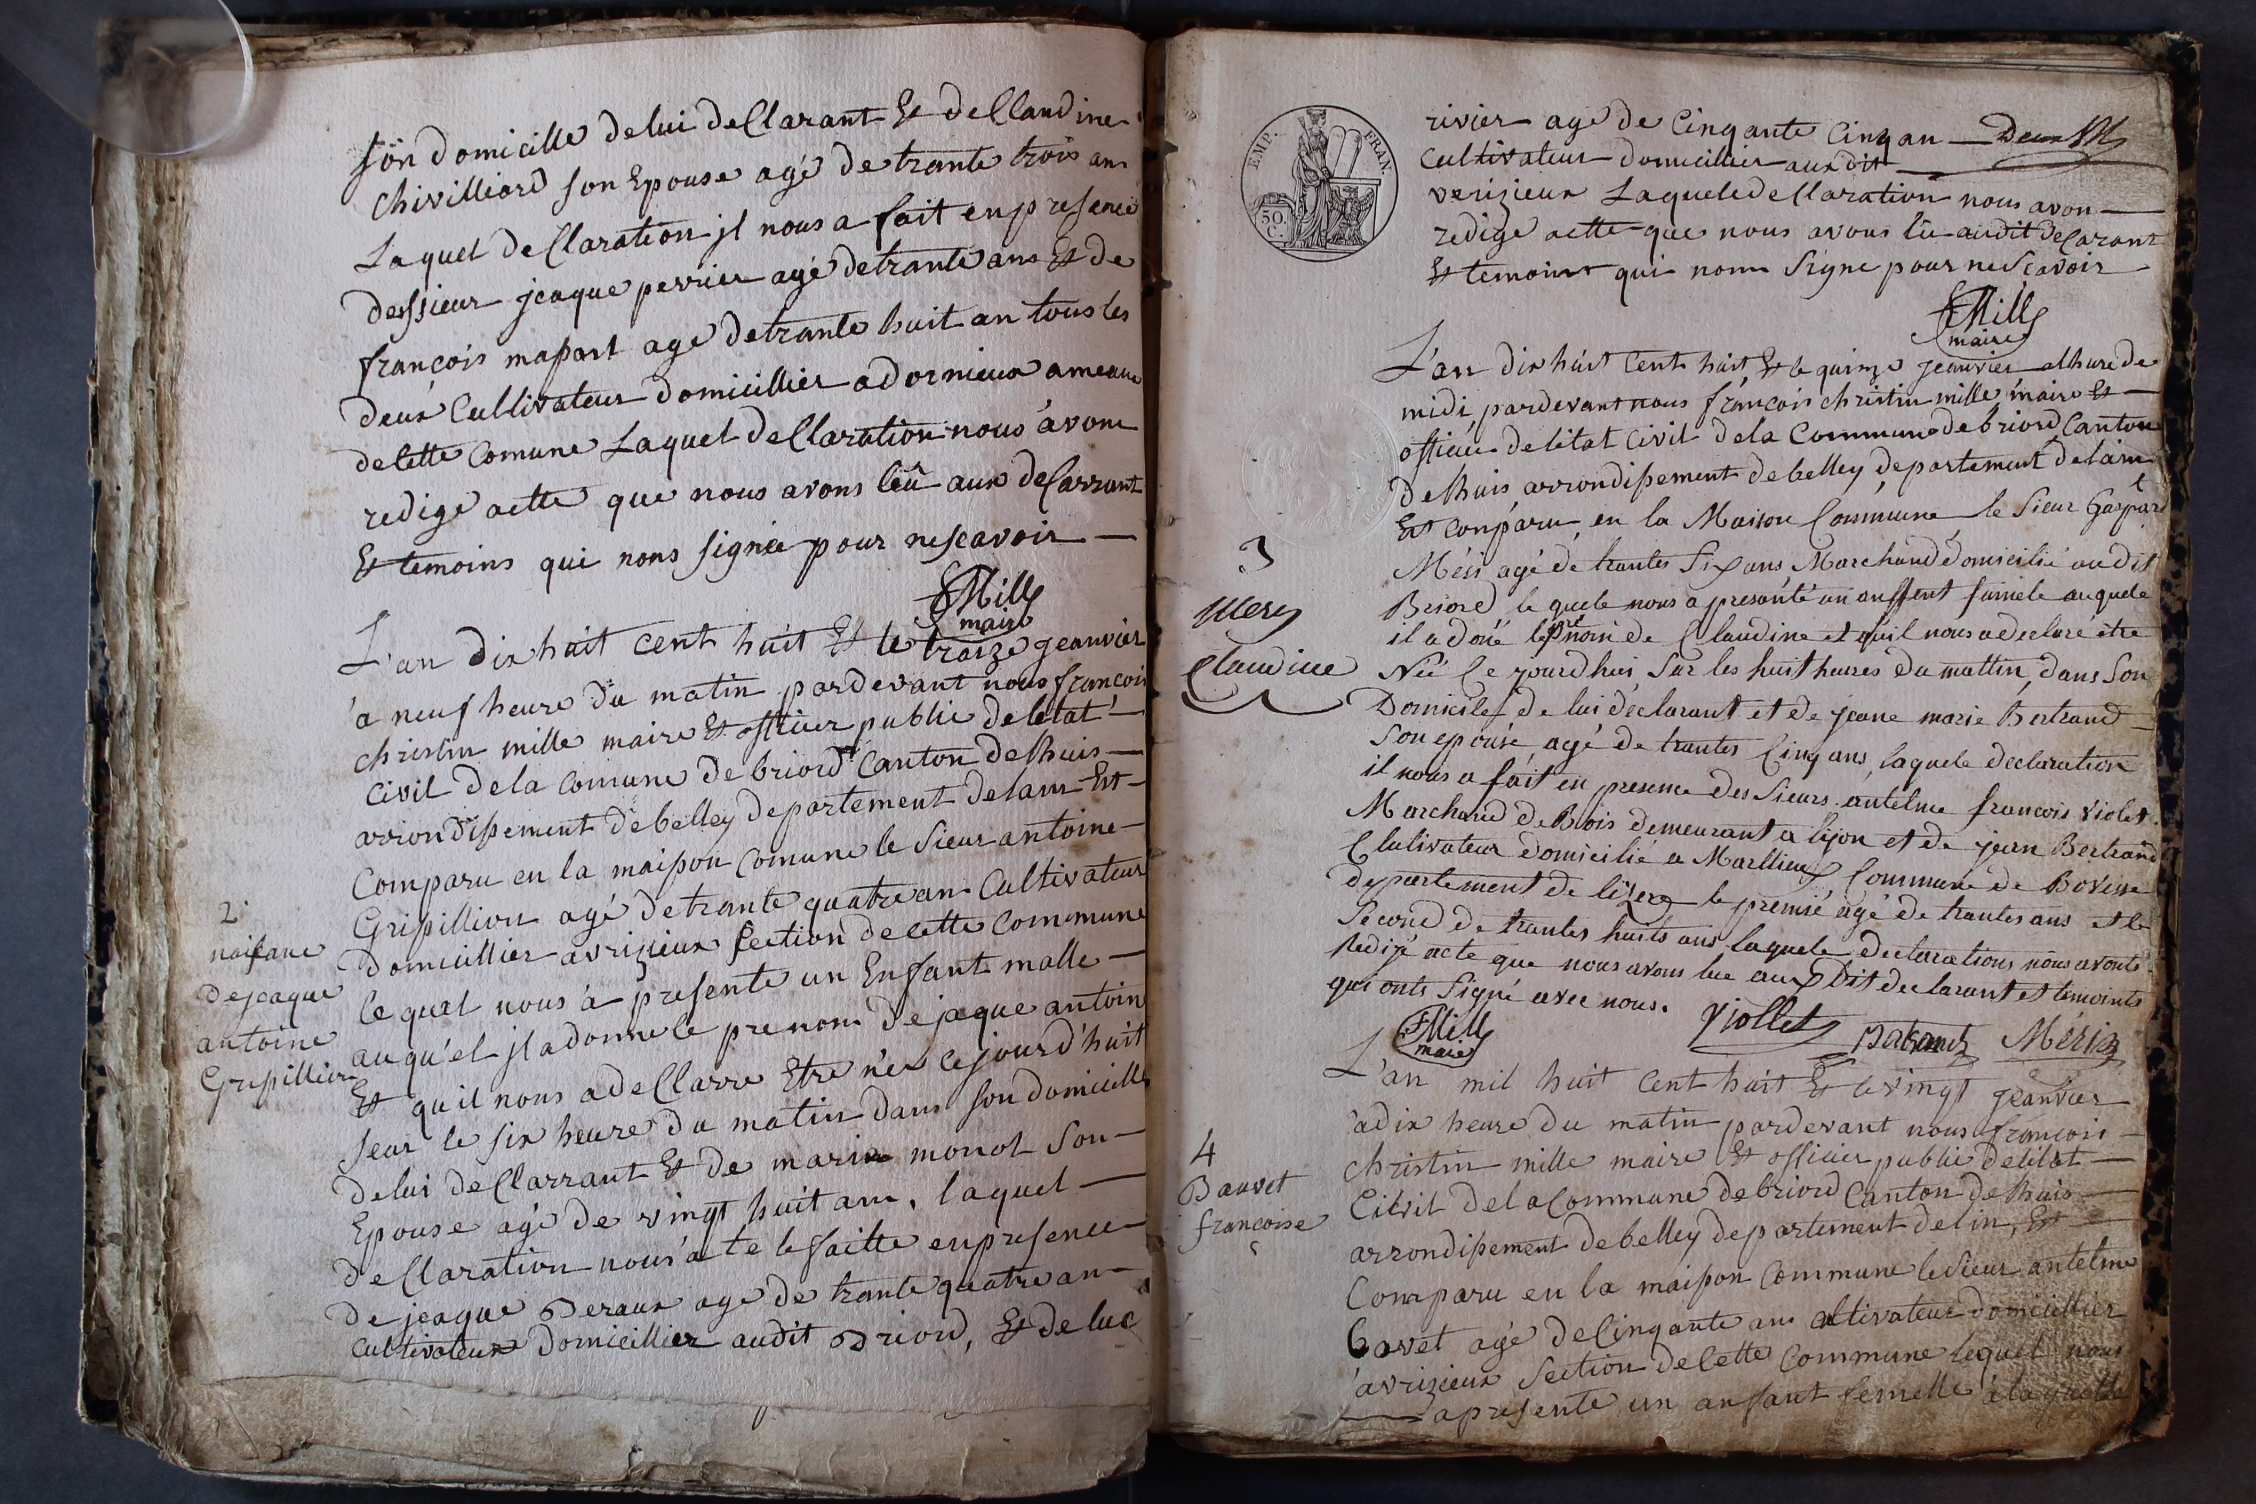 son domicille de lui deClarant Et de Claudine
chivilliord son Epouse agé de trante trois an
Laquel deClaration jl nous a fait en presence
dessieur jeaque perrier agé de trante ans Et de
françois mapart age de trante huit an tous les
deux Cultivateur domicillier a dornieux ameaux
de cette Comune Laquel deClaration nous avons
redige actte que nous avons leû aux deClarrant
Et temoins qui nons signée pour ne scavoir
FMille
maire
L'an dix huit cent huit Et le traize jeanvier
a neuf heure du matin pardevant nous francois
christin mille maire Et officier public de letat
civil de la Comune de briord Canton de lhuis
arrondissement de belley departement de lain Est
Comparu en la maison comune le sieur antoine
Gripillion agé de trante quatre an Cultivateur
domicillier a vrizieux section de cette Commune
le quel nous à presente un Enfant malle
au qu'el jl a donne le prenom de jaque antoin
Et qu il nous a deClarre Etre née ce jourd'huit
seur le six heure du matin dans son domicille
de lui deClarrant Et de marie monot son
Epouse agé de vingt huit ans, laquel
deClaration nous a te te faitte en presence
de jeaque Deraux agé de trante quatre an
cultivateur domicillier audit Briord, Et de luc
2
naisance
de jeaque
antoine
Gripillion
EMP. FRAN.
50
C.
rivier agé de Cinqante Cinq an
cultivateur domicillier aux dit
verizieux Laquele deClaration nous avon
redige actte que nous avons lû audit deCarant
Et temoins qui nons signe pour ne scavoir
FMille
maire
L'an dix huit Cent huit Et le quinze jeanvier alhure de
midi, pardevant nous françois christin mille maire Et
officier de letat civil de la Commune de briord Canton
de lhuis arrondissement de belley departement de lain
Est conparu en la Maison Commune le Sieur Gaspard
Mési agé de trantes Six ans Marchand domicilié au dit
Briord le quele nous a presonté un anffent fumele auquele
il a doné le prenom de Claudine et quil nous a declaré etre
Née Ce jourdhui Sur les huit hures du mattin, dans Son
Domicile de lui déclarant et de jeane marie Bertrand
Son epouse agé de trantes Cinq ans, laquele declaration
il nous a fait en presence des Sieurs antelme francois Violet
Marchand de Bois demeurant a lijon et de jean Bertrand
Clulivateur domicilié a Marllieux Commune de Bovesse
departement de lizere le premié agé de trantes ans et le
Second de trantes huits ans laquele declarations nous avonts
Redijé acte que nous avons lue aux dit declarant et temoints
qui onts Signé avec nous.
FMille
maire
Viollet
Mési
3
Mesy
Claudine
L'an mil huit cent huit Et le vingt jeanvier
à dix heure du matin pardevant nous françois
christin mille maire Et officier public de letat
Civil de la Commune de briord Canton de lhuis
arrondissement de belley departement de lin, Est
Comparu en la maison Commune le sieur antelme
Bavet agé de Cinqante ans cultivateur domicillier
a vrizieux Section de Cette Commune lequel nous
a presente un anfant femelle a laquelle
4
Bauvet
francoise